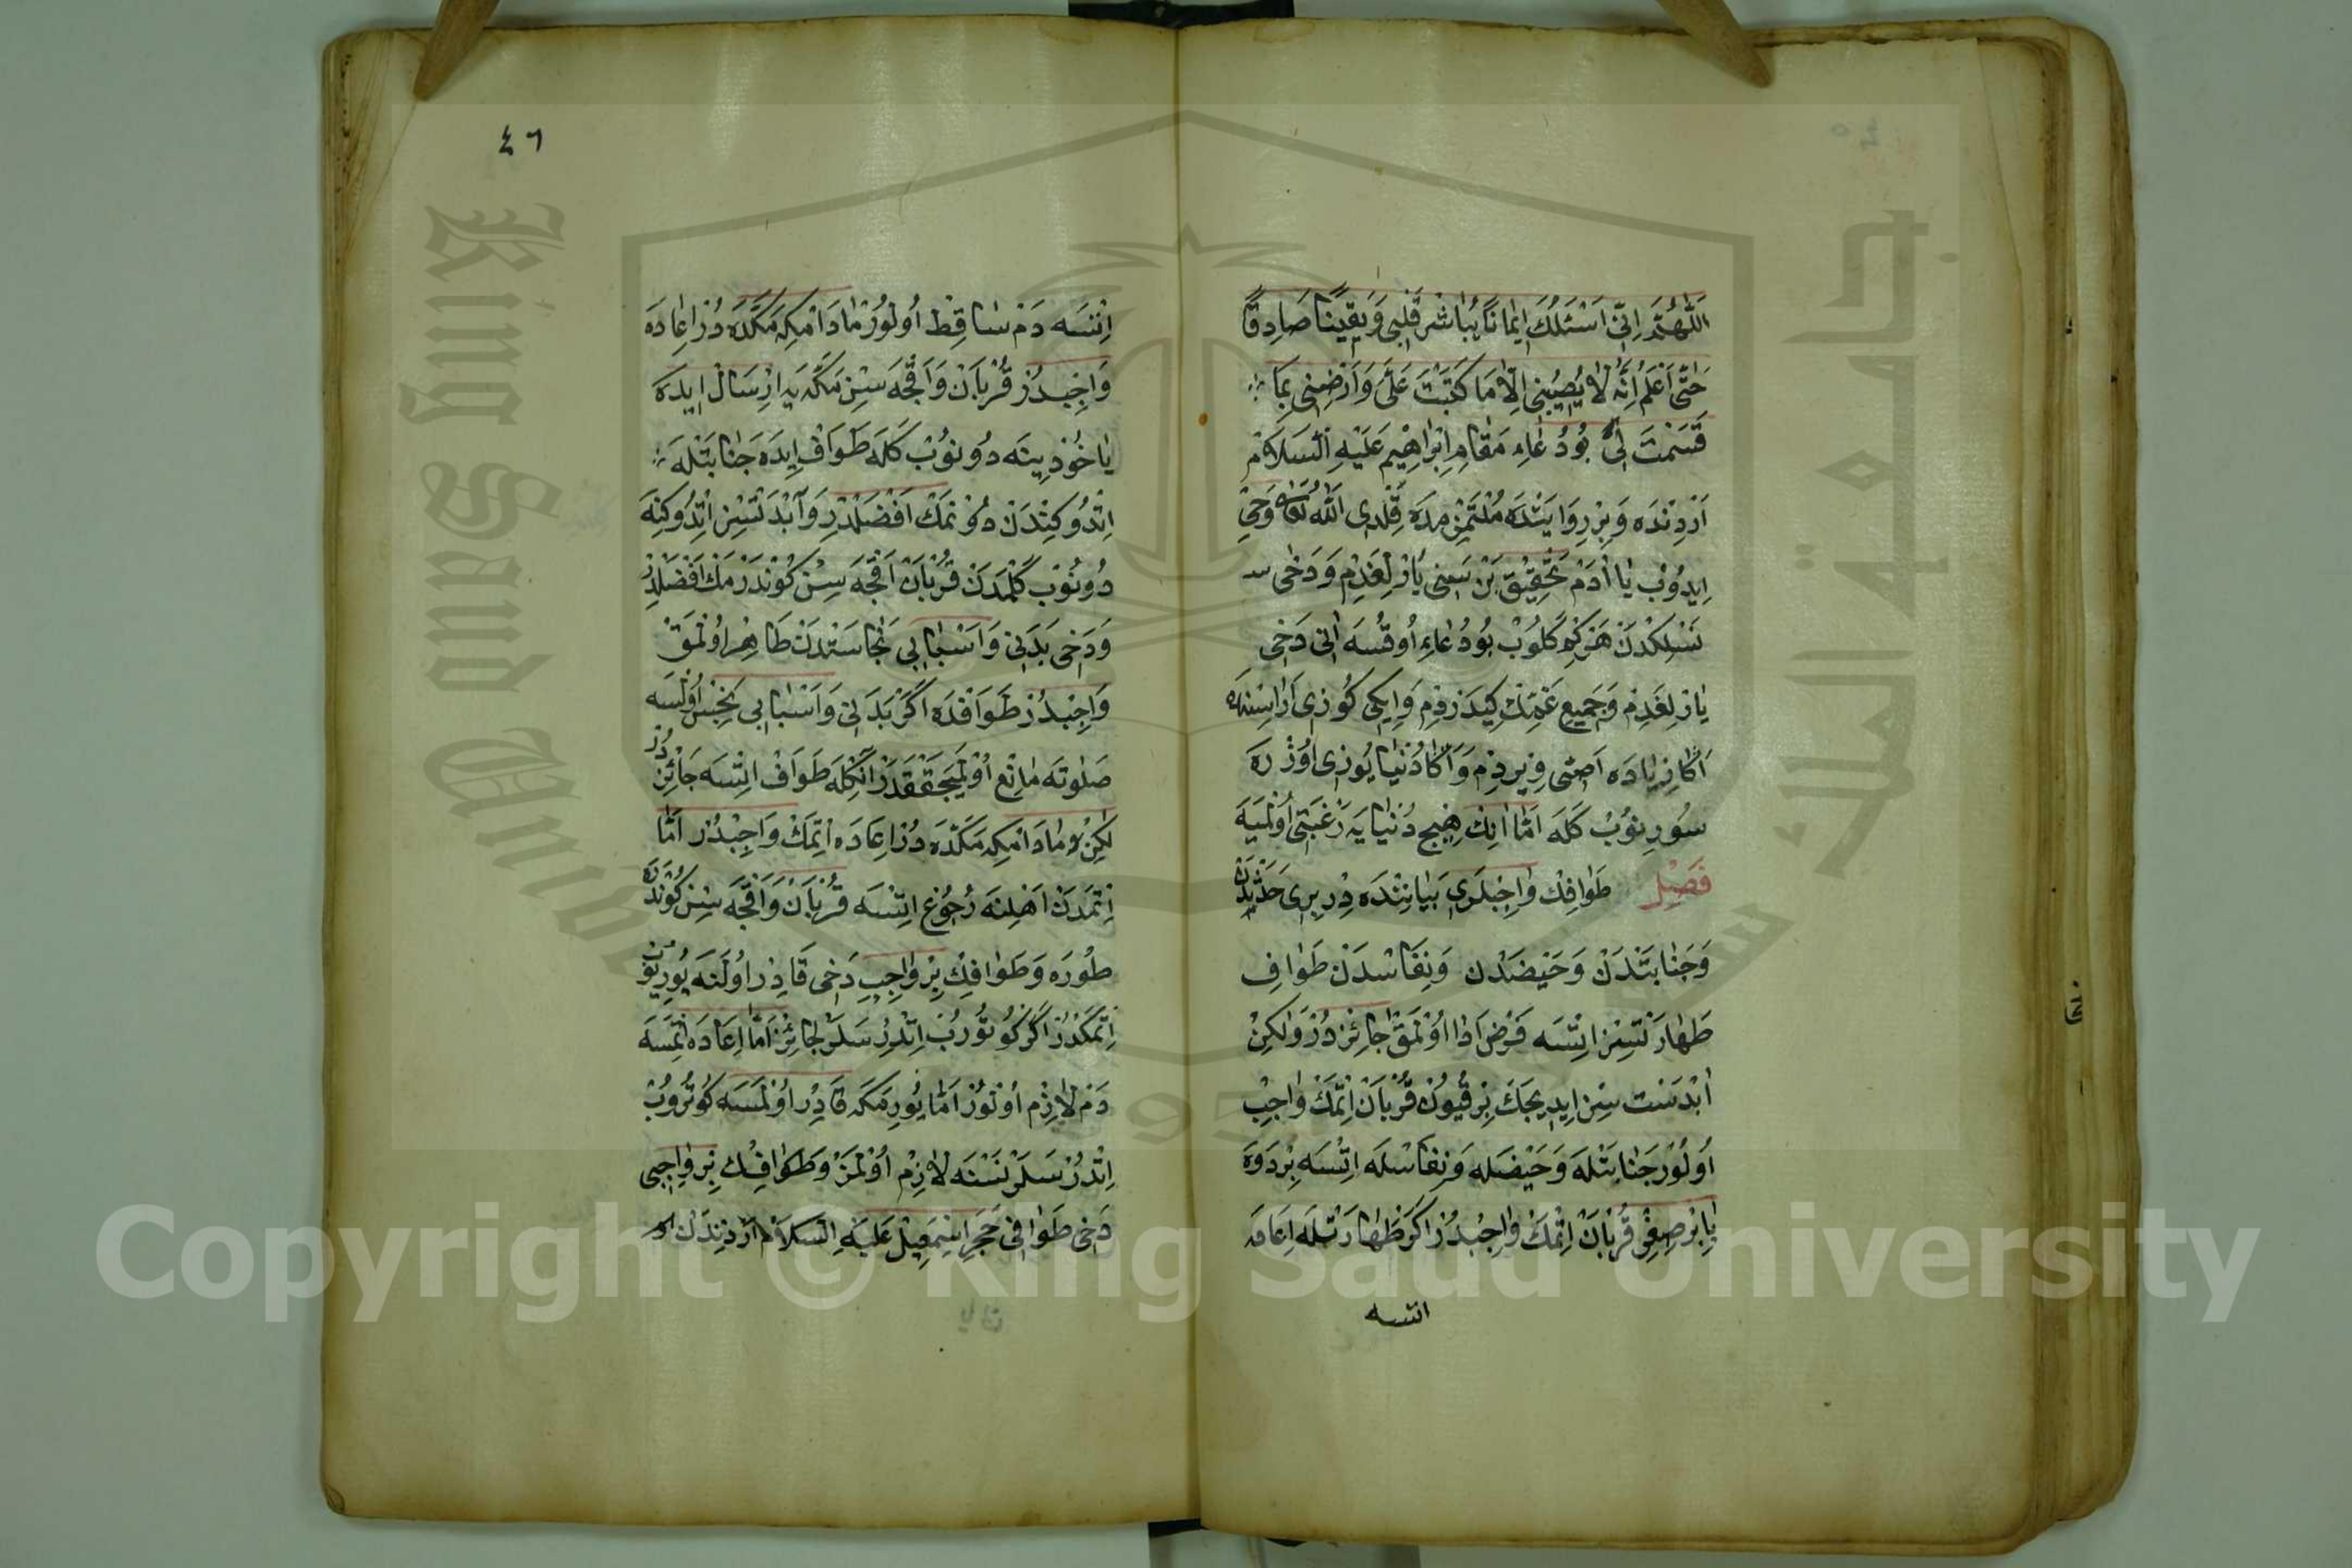 اَللّٰهُمَّ اِنِّى اَسْئَلُكَ اِيمَانًا يُبَاشِرُ قَلْبِى وَيَقِينًا صَادِقًا
حَتّٰى اَعْلَمَ اَنَّهُ لَا يُصِيبُنِى اِلَّا مَا كَتَبْتَ عَلَىَّ وَاَرْضِنِى بِمَا
قَسَمْتَ لِى بُو دُعَاءِ مَقَامِ اِبْرَاهِيمَ عَلَيْهِ السَّلَامْ
اَرْدِنْدَه وَبِرْ رِوَايَتْدَه مُلْتَزِمْدَه قِلْدِى اَللّٰه تَعَالٰى وَحْىِ
اِيدُوبْ يَا اٰدَمْ تَحْقِيقْ بَنْ سَنِى يَارْلِغَدِمْ وَدَخِى
نَسْلِكْدَنْ هَرْ كِمْ كَلُوبْ بُو دُعَاءِ اُوقُسَه اَنِى دَخِى
يَارْلِغَدِمْ وَجَمِيعِ غَمِنْ كِيدَرْدِمْ وَاِيكِى كُوزِى اَرَاسِنْدَه
اَكَا زِيَادَه اَصِّى وِيرْدِمْ وَاَكَا دُنْيَا يُوزِى اُوزْرَه
سُورِنُوبْ كَلَه اَمَّا اَنِكْ هِيچْ دُنْيَايَه رَغْبَتِى اُولْمَيَه
فَصْلْ طَوَافِكْ وَاجِبْلَرِى بَيَانِنْدَه دِرْ بِرِى حَدَثْدَنْ
وَجَنَابَتْدَنْ وَحَيْضَدْن وَنِفَاسْدَنْ طَوَافِ
طَهَارَتْسِزْ اِتْسَه فَرْضْ اَدَا اُولْمَقْ جَائِزْ دُرْ وَلٰكِنْ
اَبْدَسْت سِزْ اِيدِيجَكْ بِرْ قُيُونْ قُرْبَانْ اِتْمَكْ وَاجِبْ
اُولُورْ جَنَابَتْلَه وَحَيْضَلَه وَنِفَاسْلَه اِتْسَه بِرْ دَوَه
يَا بِرْ صِغِرْ قُرْبَانْ اِتْمَكْ وَاجِبْدُرْ اَكَرْ طَهَارَتْلَه اِعَادَه
اتسه
٤٦
اِتْسَه دَمْ سَاقِطْ اُولُورْ مَادَامْكِه مَكَّدَه دُرْ اِعَادَه
وَاجِبْدُرْ قُرْبَانْ وَاَقْچَه سِنْ مَكَّه يَه اِرْسَالْ اِيدَه
يَاخُوذْ يِنَه دُونُوبْ كَلَه طَوَافْ اِيدَه جَنَابَتْلَه
اِتْدُوكِنْدَنْ دُونْمَكْ اَفْضَلْدِرْ وَآبْدَسْتْسِزْ اِتْدُوكِنَه
دُونُوبْ كَلْمَدَنْ قُرْبَانْ اَقْچَه سِنْ كُونْدَرْمَكْ اَفْضَلْدِرْ
وَدَخِى بَدَنِى وَاَسْبَابِى نَجَاسَتْدَنْ طَاهِرْ اُولْمَقْ
وَاجِبْدُرْ طَوَافْدَه اَكَرْ بَدَنِى وَاَسْبَابِى نَجِسْ اُولْسَه
صَلٰوتَه مَانِعْ اُولْيَجَقْ قَدَرْ اَنِكْلَه طَوَافْ اِتْسَه جَائِزْ دُرْ
لٰكِنْ مَادَامْكِه مَكَّدَه دُرْ اِعَادَه اِتْمَكْ وَاجِبْدُرْ اَمَّا
اِتْمَدَنْ اَهْلِنَه رُجُوعْ اِتْسَه قُرْبَانْ وَاَقْچَه سِنْ كُونْدَرَه
طُورَه وَطَوَافِكْ بِرْ وَاجِبِ دَخِى قَادِرْ اُولَنَه يُورِيُوبْ
اِتْمَكْدُرْ اَكَرْ كُوتُورُبْ اِتْدِرُرْسَلَرْ جَائِزْ اَمَّا اِعَادَه اِتْمَسَه
دَمْ لَازِمْ اُولُورْ اَمَّا يُورِمَكَه قَادِرْ اُولْمَسَه كُوتُرُوبْ
اِتْدُرْسَلَرْ نَسْنَه لَازِمْ اُولْمَزْ وَطَوَافِكْ بِرْ وَاجِبِى
دَخِى طَوَافِى حَجَرِ اِسْمَعِيلْ عَلَيْهِ السَّلَامْ اَرْدِنْدَنْ